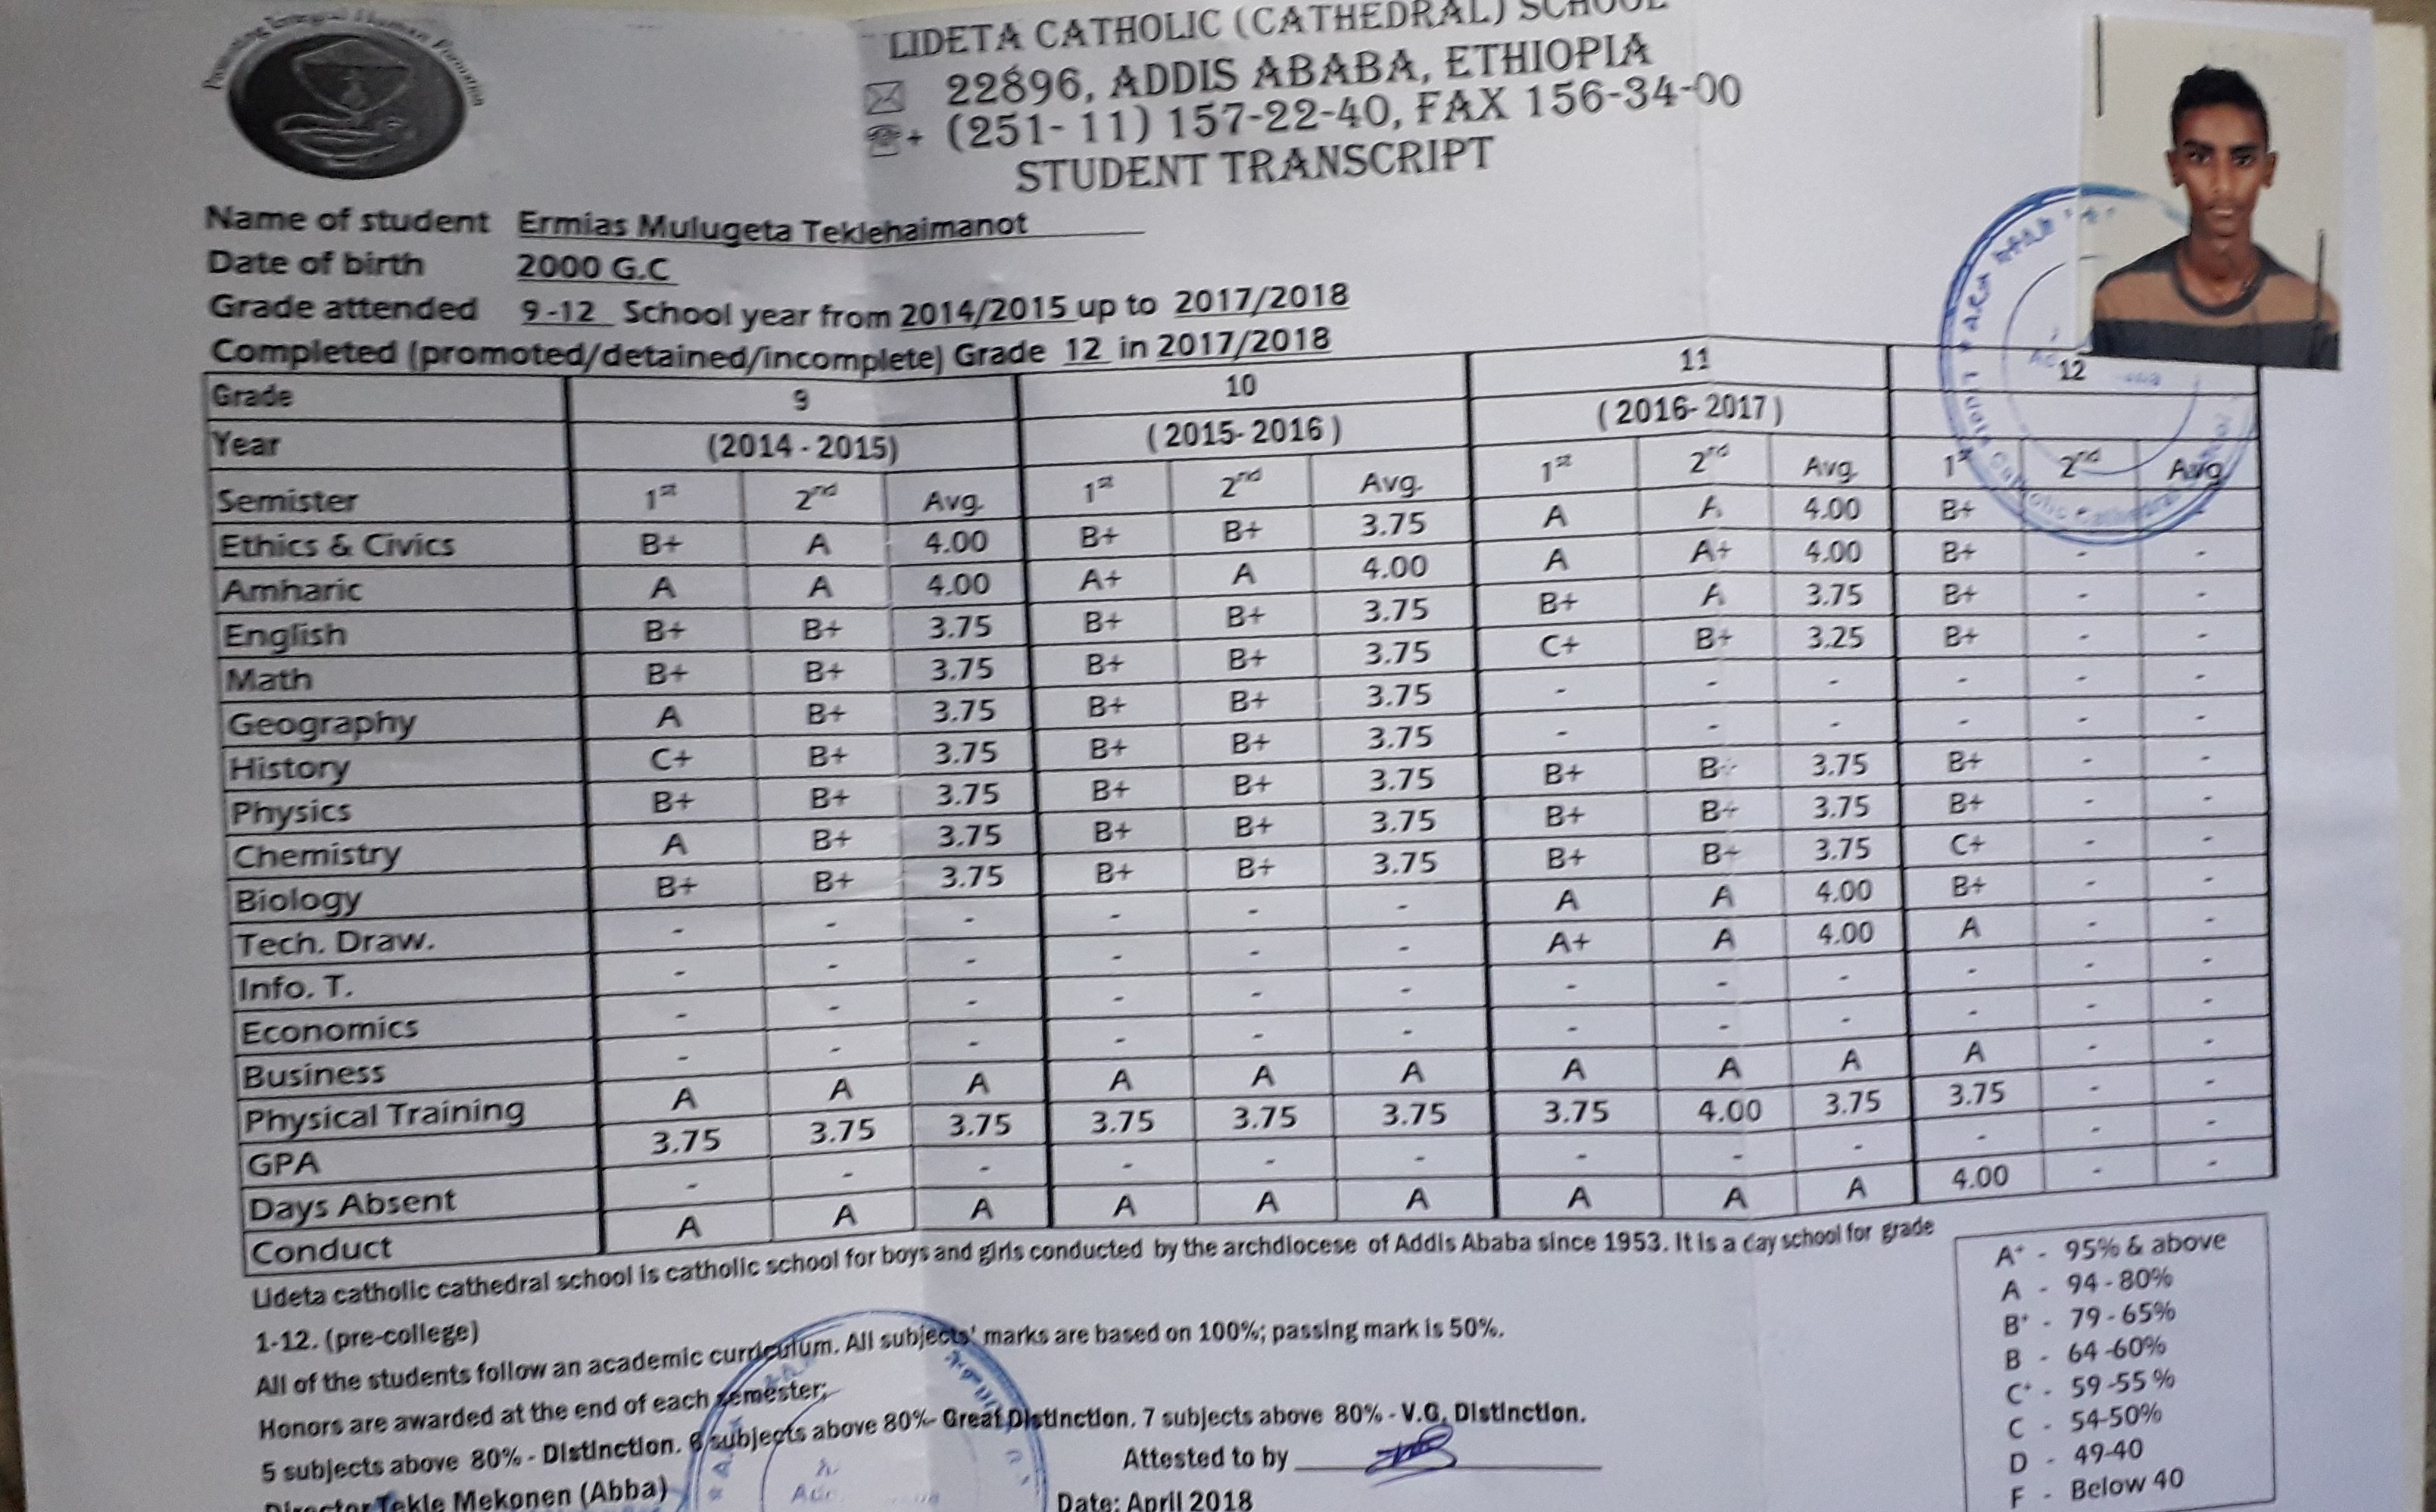 Promoting Integral Human Formation
LIDETA CATHOLIC (CATHEDRAL) SCHOOL
22896, ADDIS ABABA, ETHIOPIA
+ (251- 11) 157-22-40, FAX 156-34-00
STUDENT TRANSCRIPT
Name of student Ermias Mulugeta Teklehaimanot
Date of birth 2000 G.C
Grade attended 9-12 School year from 2014/2015 up to 2017/2018
Completed (promoted/detained/incomplete) Grade 12 in 2017/2018
Grade 9 10 11 12
Year (2014 - 2015) ( 2015- 2016 ) ( 2016- 2017 )
Semister 1st 2nd Avg. 1st 2nd Avg. 1st 2nd Avg. 1st 2nd Avg
Ethics & Civics B+ A 4.00 B+ B+ 3.75 A A 4.00 B+ -
Amharic A A 4.00 A+ A 4.00 A A+ 4.00 B+ - -
English B+ B+ 3.75 B+ B+ 3.75 B+ A 3.75 B+ - -
Math B+ B+ 3.75 B+ B+ 3.75 C+ B+ 3.25 B+ - -
Geography A B+ 3.75 B+ B+ 3.75 - - - - - -
History C+ B+ 3.75 B+ B+ 3.75 - - - - - -
Physics B+ B+ 3.75 B+ B+ 3.75 B+ B+ 3.75 B+ - -
Chemistry A B+ 3.75 B+ B+ 3.75 B+ B+ 3.75 B+ - -
Biology B+ B+ 3.75 B+ B+ 3.75 B+ B+ 3.75 C+ - -
Tech. Draw. - - - - - - A A 4.00 B+ - -
Info. T. - - - - - - A+ A 4.00 A - -
Economics - - - - - - - - - - - -
Business - - - - - - - - - - - -
Physical Training A A A A A A A A A A - -
GPA 3.75 3.75 3.75 3.75 3.75 3.75 3.75 4.00 3.75 3.75 - -
Days Absent - - - - - - - - - - - -
Conduct A A A A A A A A A 4.00 - -
Lideta catholic cathedral school is catholic school for boys and girls conducted by the archdiocese of Addis Ababa since 1953. It is a day school for grade
1-12. (pre-college)
All of the students follow an academic curriculum. All subjects' marks are based on 100%; passing mark is 50%.
Honors are awarded at the end of each semester;
5 subjects above 80% - Distinction. 6 subjects above 80%- Great Distinction. 7 subjects above 80% - V.G. Distinction.
Attested to by
Director Tekle Mekonen (Abba)
Date: April 2018
A+ - 95% & above
A - 94 - 80%
B+ - 79 - 65%
B - 64 -60%
C+ - 59 -55 %
C - 54-50%
D - 49-40
F - Below 40